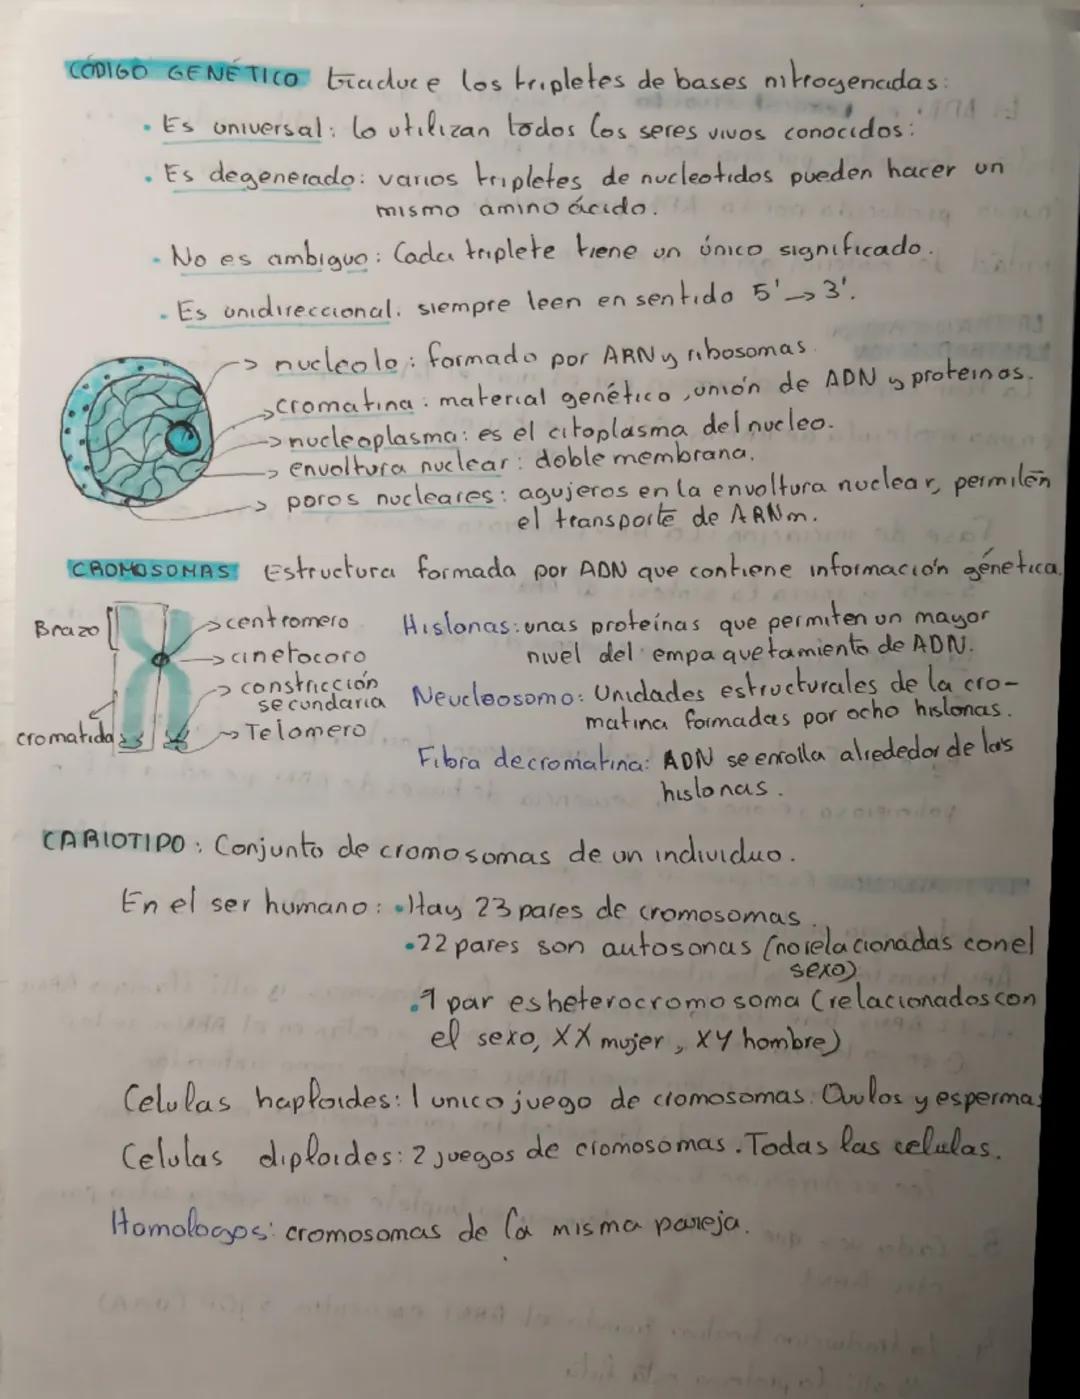 CÓDIGO GENÉTICO traduce los tripletes de bases nitrogenadas:
• Es universal: lo utilizan todos los seres vivos conocidos:
• Es degenerado: varios tripletes de nucleotidos pueden hacer un
mismo aminoácido.
• No es ambiguo: Cada triplete tiene un único significado.
• Es unidireccional. siempre leen en sentido 5'→3'.
→ nucleolo: formado por ARN y ribosomas.
→ cromatina: material genético, unión de ADN y proteinas.
→ nucleoplasma: es el citoplasma del nucleo.
→ envoltura nuclear: doble membrana.
→ poros nucleares: agujeros en la envoltura nuclear, permiten
el transporte de ARNm.
CROMOSOMAS Estructura formada por ADN que contiene información génetica.
Brazo
→ centromero
→ cinetocoro
→ constricción
secundaria
→ Telomero
cromatidas
Histonas: unas proteínas que permiten un mayor
nivel del empaquetamiento de ADN.
Neucleosomo: Unidades estructurales de la cro-
matina formadas por ocho histonas.
Fibra de cromatina: ADN se enrolla alrededor de las
histonas.
CARIOTIPO: Conjunto de cromosomas de un individuo.
En el ser humano: • Hay 23 pares de cromosomas.
• 22 pares son autosonas (no relacionadas con el
sexo)
• 1 par es heterocromosoma (relacionados con
el sexo, XX mujer, XY hombre)
Celulas haploides: 1 unico juego de cromosomas. Ovulos y espermas
Celulas diploides: 2 juegos de cromosomas. Todas las celulas.
Homologos: cromosomas de la misma pareja.